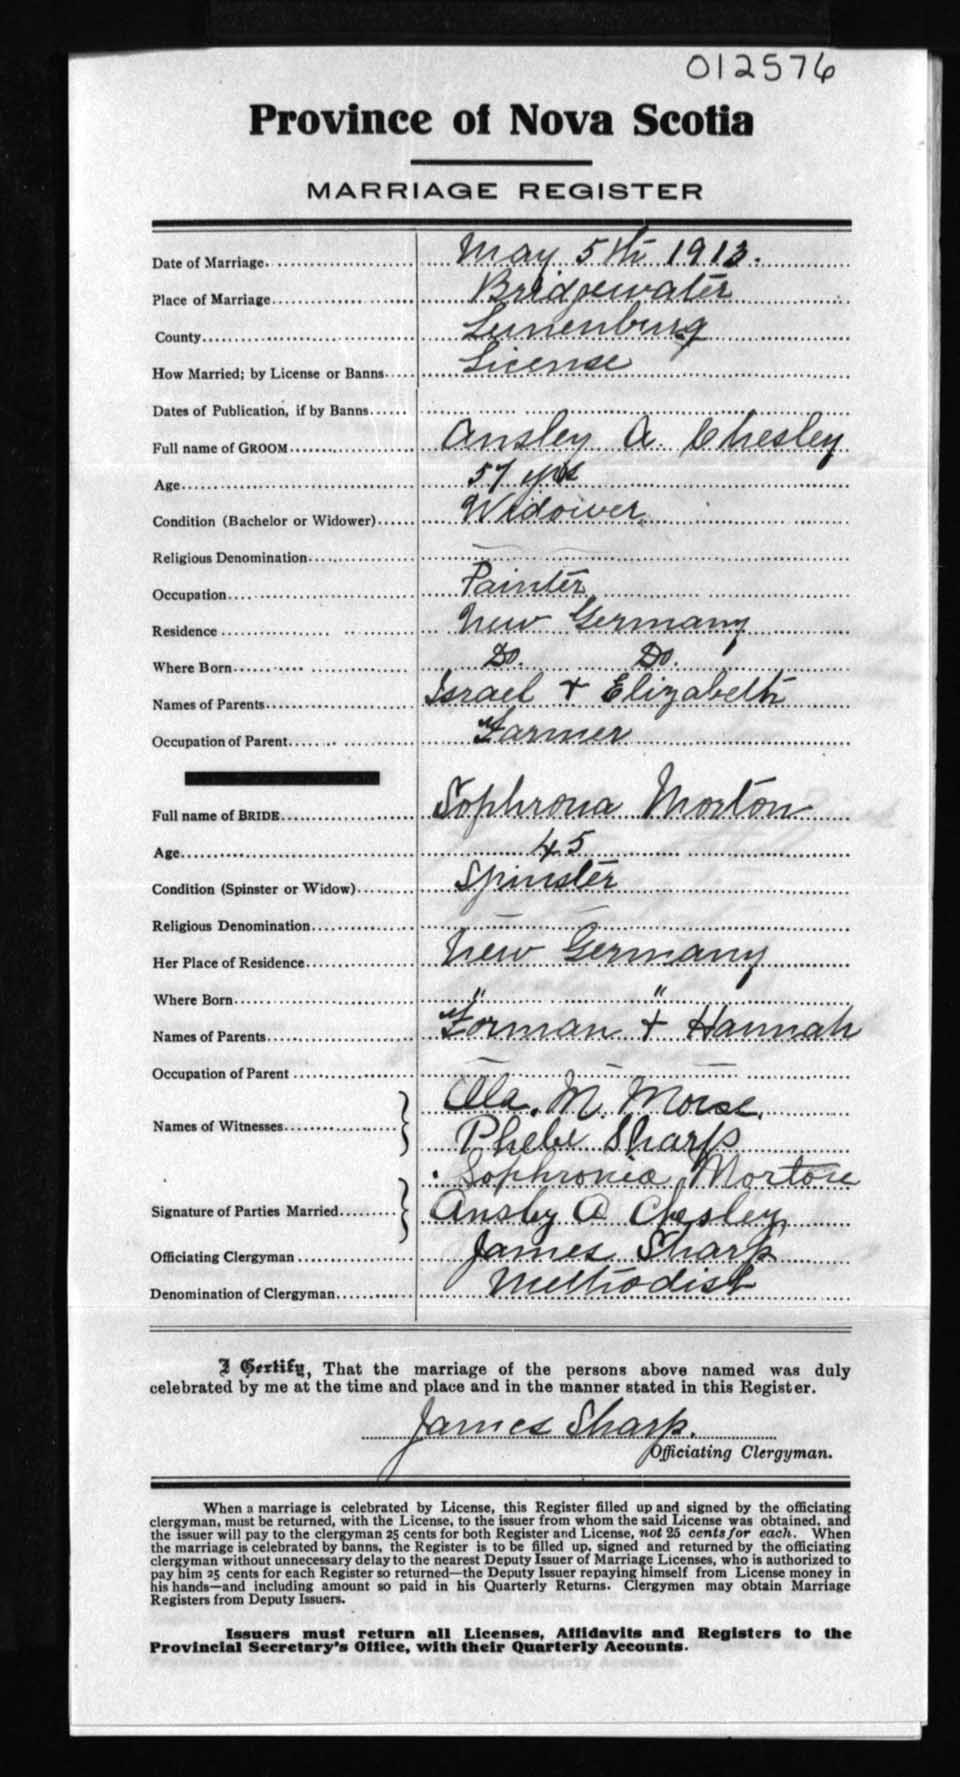 012576
Province of Nova Scotia
MARRIAGE REGISTER
Date of Marriage. May 5th 1913.
Place of Marriage Bridgewater
County Lunenburg
How Married; by License or Banns License
Dates of Publication, if by Banns
Full name of GROOM Ansley A. Chesley
Age 57 yrs
Condition (Bachelor or Widower) Widower
Religious Denomination —
Occupation Painter
Residence New Germany
Where Born Do. Do.
Names of Parents Israel + Elizabeth
Occupation of Parent Farmer
Full name of BRIDE Sophrona Morton
Age 45
Condition (Spinster or Widow) Spinster
Religious Denomination —
Her Place of Residence New Germany
Where Born " "
Names of Parents Forman + Hannah
Occupation of Parent — —
Names of Witnesses M. Morse.
Phebe Sharp
Sophronia Morton
Signature of Parties Married Ansley A Chesley
Officiating Clergyman James Sharp
Denomination of Clergyman Methodist
I Certify, That the marriage of the persons above named was duly
celebrated by me at the time and place and in the manner stated in this Register.
James Sharp.
Officiating Clergyman.
When a marriage is celebrated by License, this Register filled up and signed by the officiating
clergyman, must be returned, with the License, to the issuer from whom the said License was obtained, and
the issuer will pay to the clergyman 25 cents for both Register and License, not 25 cents for each. When
the marriage is celebrated by banns, the Register is to be filled up, signed and returned by the officiating
clergyman without unnecessary delay to the nearest Deputy Issuer of Marriage Licenses, who is authorized to
pay him 25 cents for each Register so returned—the Deputy Issuer repaying himself from License money in
his hands—and including amount so paid in his Quarterly Returns. Clergymen may obtain Marriage
Registers from Deputy Issuers.
Issuers must return all Licenses, Affidavits and Registers to the
Provincial Secretary's Office, with their Quarterly Accounts.